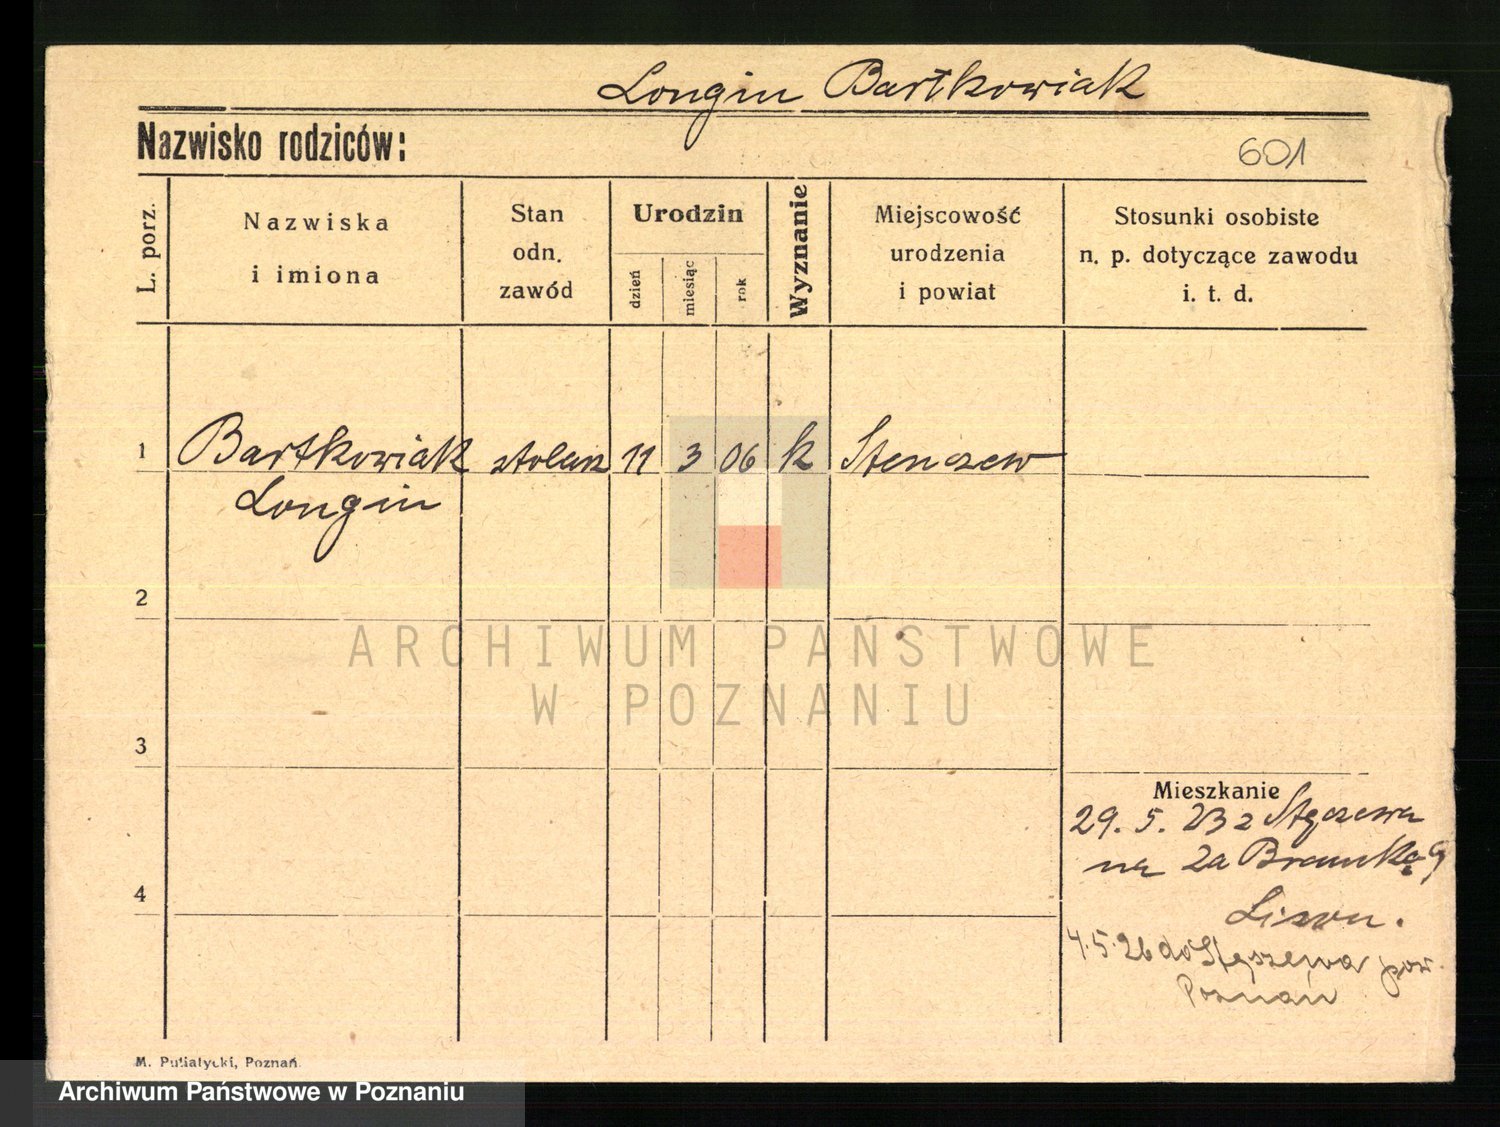 Longin Bartkowiak
Nazwisko rodziców:
601
L. porz.
Nazwiska
i imiona
Stan
odn.
zawód
Urodzin
dzień
miesiąc
rok
Wyznanie
Miejscowość
urodzenia
i powiat
Stosunki osobiste
n. p. dotyczące zawodu
i. t. d.
1 Bartkowiak stolarz 11 3 06 k Stenczew
Longin
2
ARCHIWUM PAŃSTWOWE
W POZNANIU
3
Mieszkanie
29. 5. 23 z Stęczewa
na 2a
4
4.5.26 do Stęszewa pow.
Poznań
M. Putiatycki, Poznań.
Archiwum Państwowe w Poznaniu